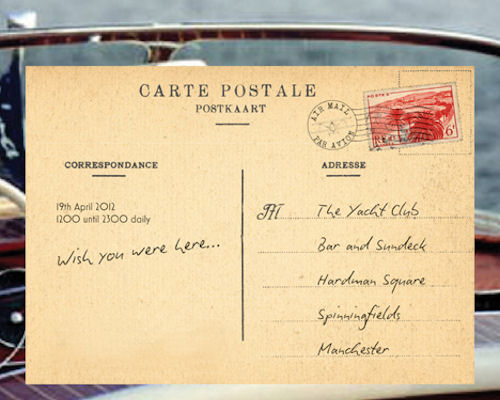 CARTE POSTALE
POSTKAART
AIR MAIL
PAR AVION
POSTES
RF
6F
CORRESPONDANCE
ADRESSE
19th April 2012
1200 until 2300 daily
Wish you were here...
The Yacht Club
Bar and Sundeck
Hardman Square
Spinningfields
Manchester